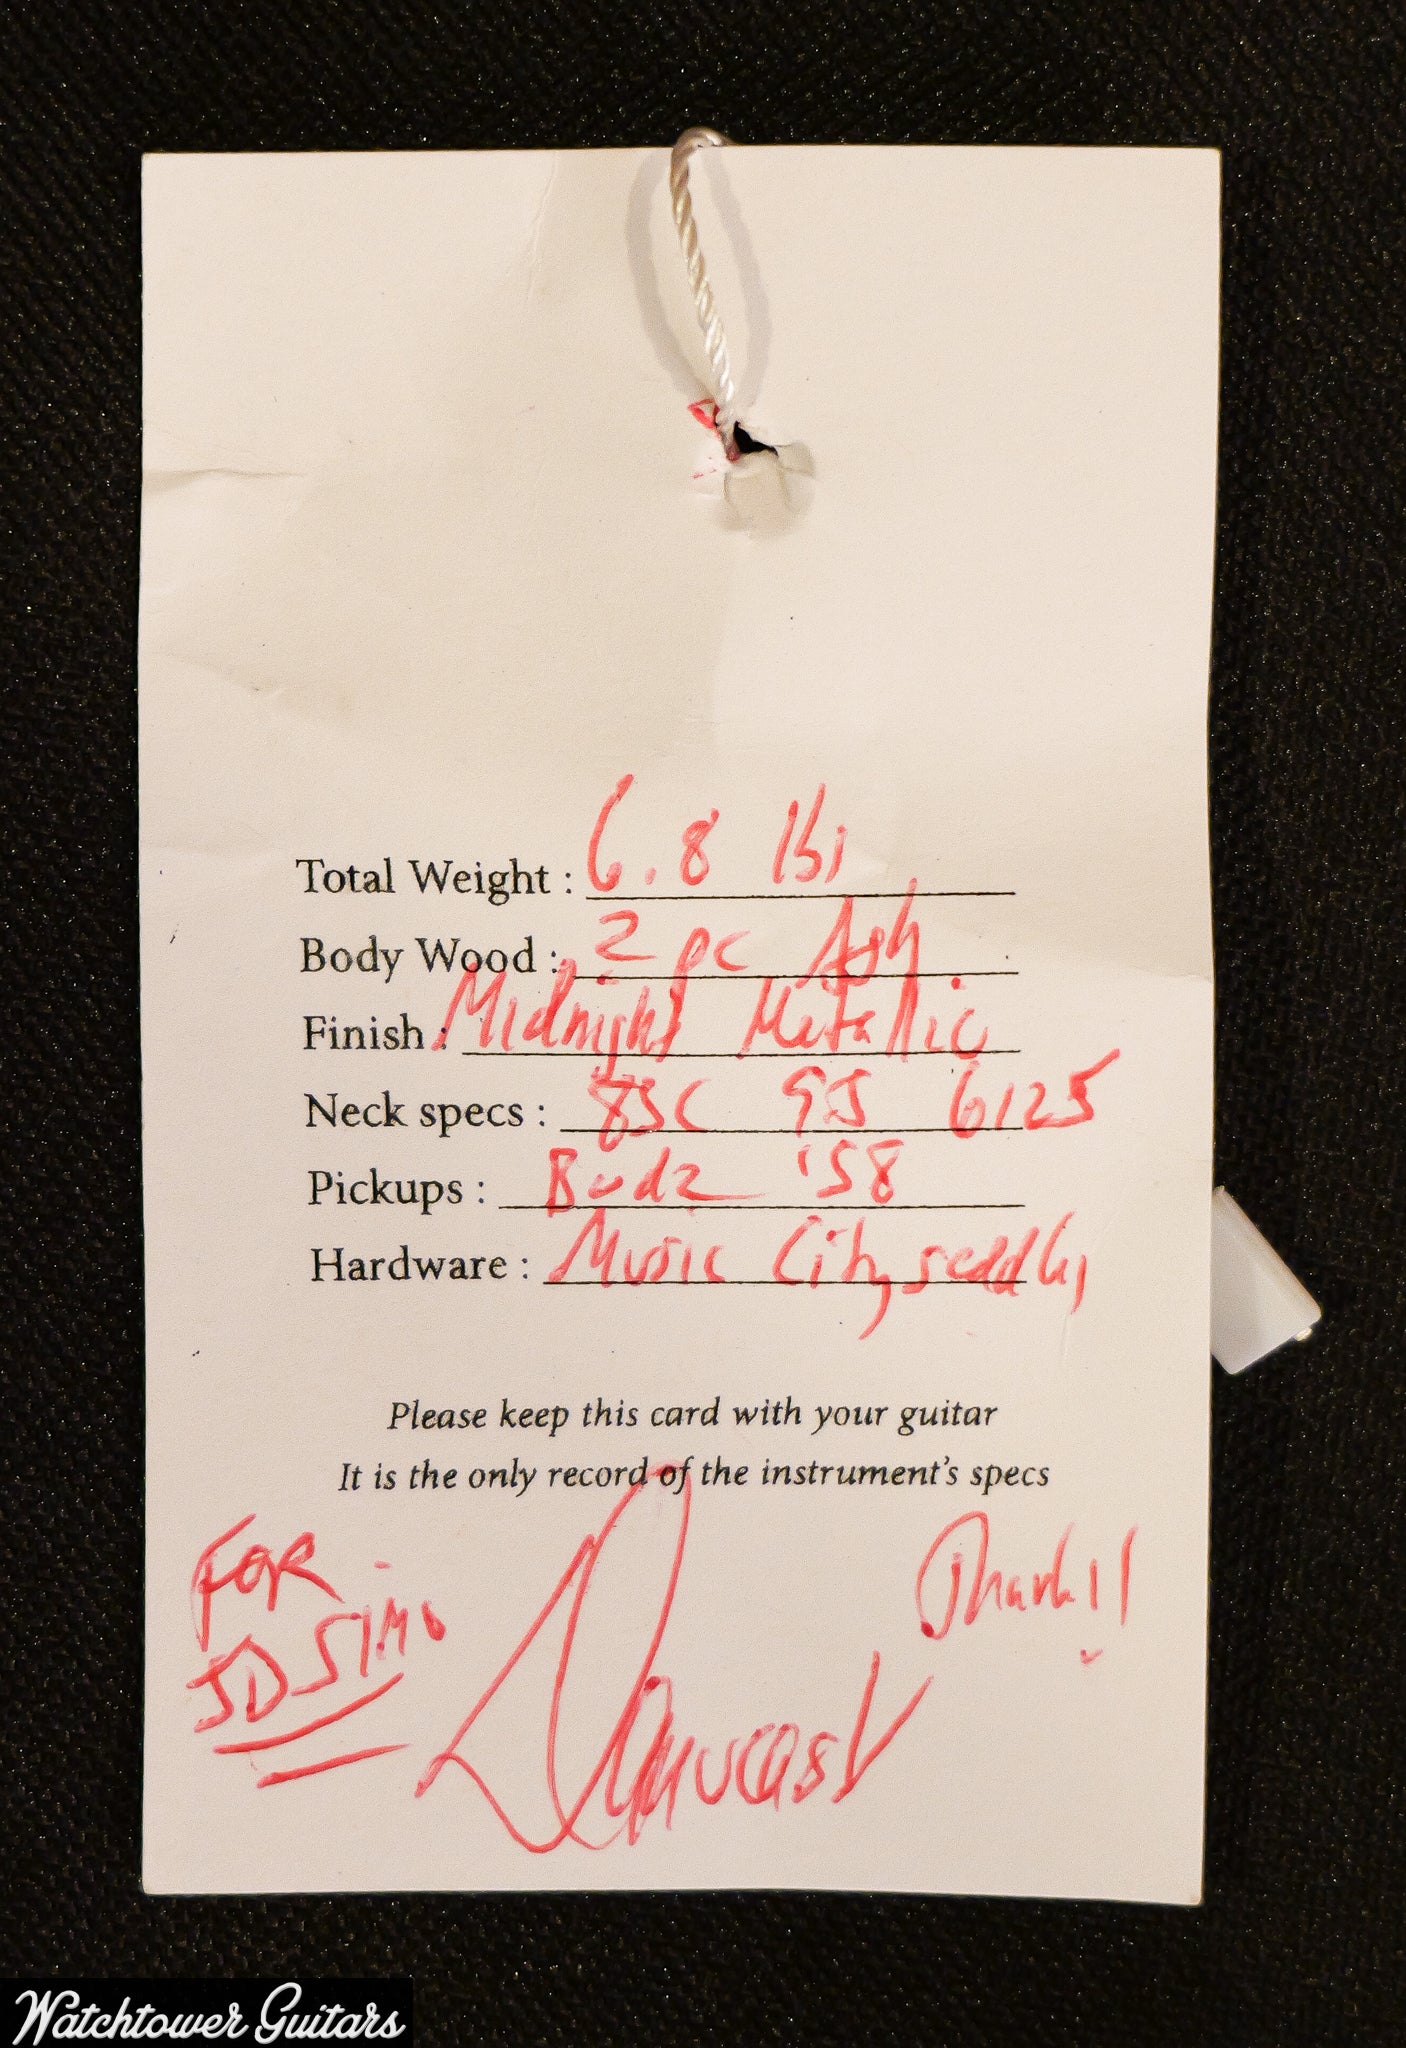 Total Weight : 6.8 lbs
Body Wood : 2 pc Ash
Finish : Midnight Metallic
Neck specs : 85C 95 6125
Pickups : Budz '58
Hardware : Music City
Please keep this card with your guitar
It is the only record of the instrument's specs
FOR
JD SIMO
Thank!!
Watchtower Guitars